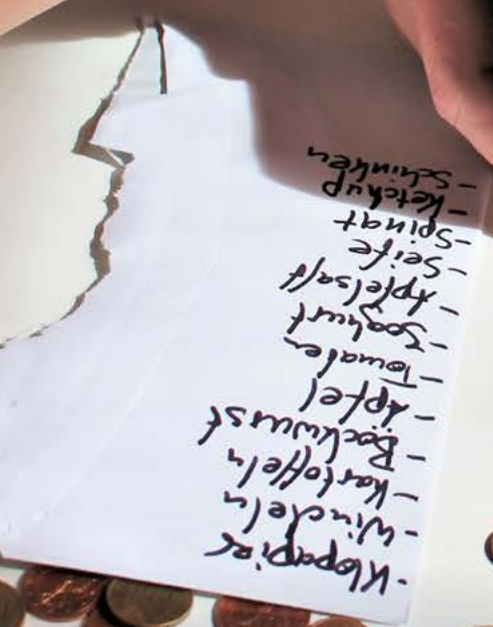 - Klopapier
- Windeln
- Kartoffeln
- Bockwurst
- Äpfel
- Tomaten
- Joghurt
- Apfelsaft
- Seife
- Spinat
- Ketchup
- Schinken